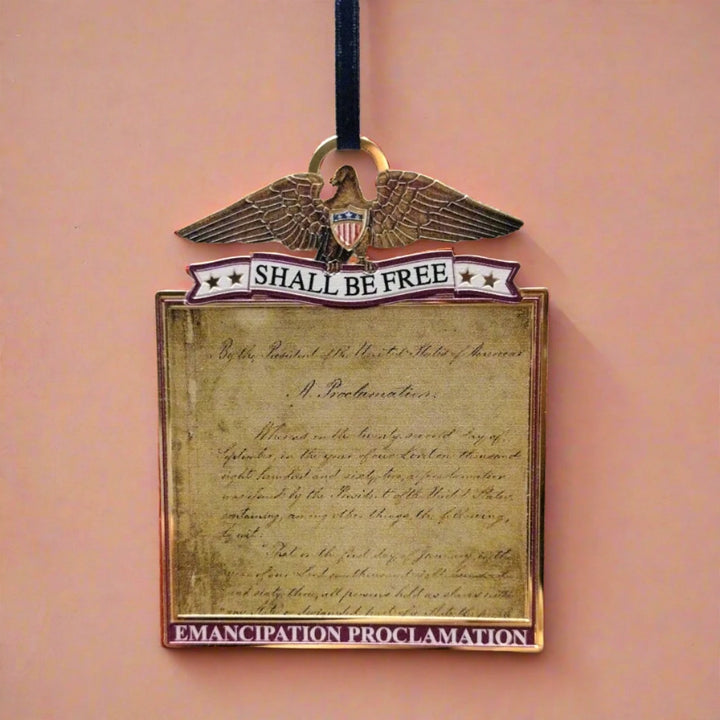 SHALL BE FREE
By the President of the United States of America
A Proclamation.
Whereas, on the twenty-second day of
September, in the year of our Lord one thousand
eight hundred and sixty-two, a proclamation
was issued by the President of the United States,
containing, among other things, the following,
to wit:
"That on the first day of January, in the
year of our Lord one thousand eight hundred
and sixty-three, all persons held as slaves within
EMANCIPATION PROCLAMATION